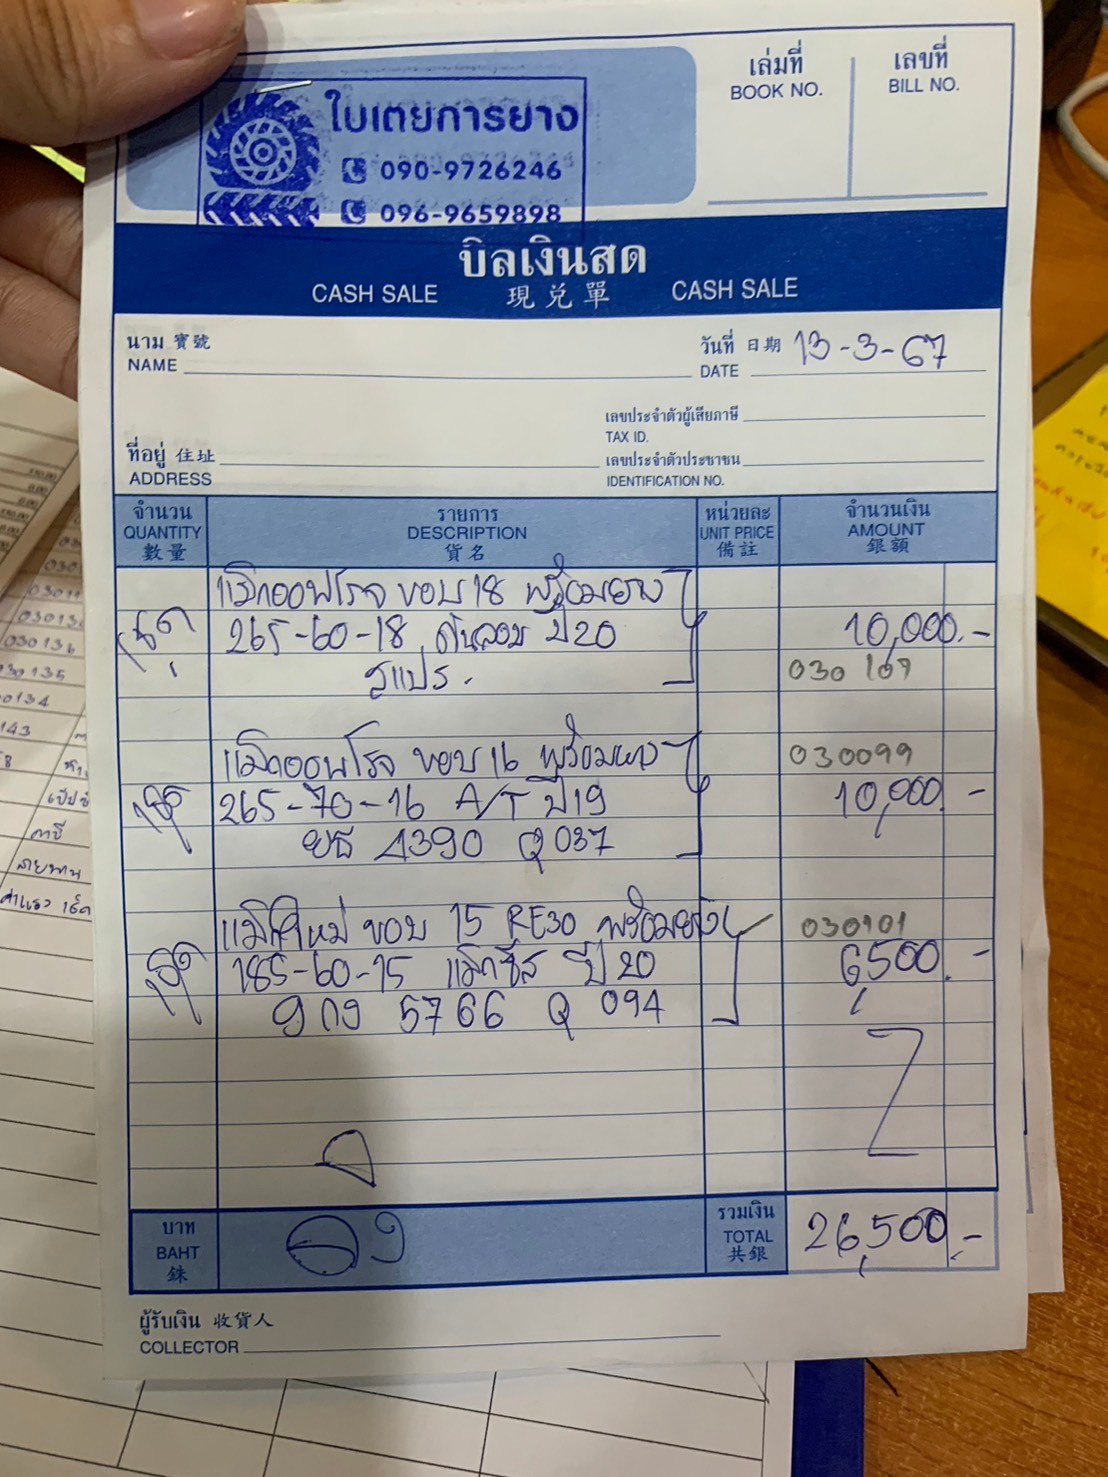 ใบเตยการยาง
090-9726246
096-9659898
เล่มที่
BOOK NO.
เลขที่
BILL NO.
บิลเงินสด
CASH SALE 現兌單 CASH SALE
นาม 寶號
NAME
วันที่ 日期 13-3-67
DATE
เลขประจำตัวผู้เสียภาษี
TAX ID.
ที่อยู่ 住址
ADDRESS
เลขประจำตัวประชาชน
IDENTIFICATION NO.
จำนวน
QUANTITY
數量
รายการ
DESCRIPTION
貨名
หน่วยละ
UNIT PRICE
備註
จำนวนเงิน
AMOUNT
銀額
แม็กออฟโรจ ขอบ 18 พร้อมยาง
265-60-18 ดันลอป ปี 20 10,000.-
030 107
แม็กออฟโรจ ขอบ 16 พร้อมยาง 030099
265-70-16 A/T ปี 19 10,000.-
ยธ 4390 Q 037
แม็กใหม่ ขอบ 15 RE30 พร้อมยาง 030101
185-60-15 แม็กซีส ปี 20 6,500.-
9กง 5766 Q 094
บาท
BAHT
銖
รวมเงิน
TOTAL
共銀
26,500.-
ผู้รับเงิน 收貨人
COLLECTOR
030135